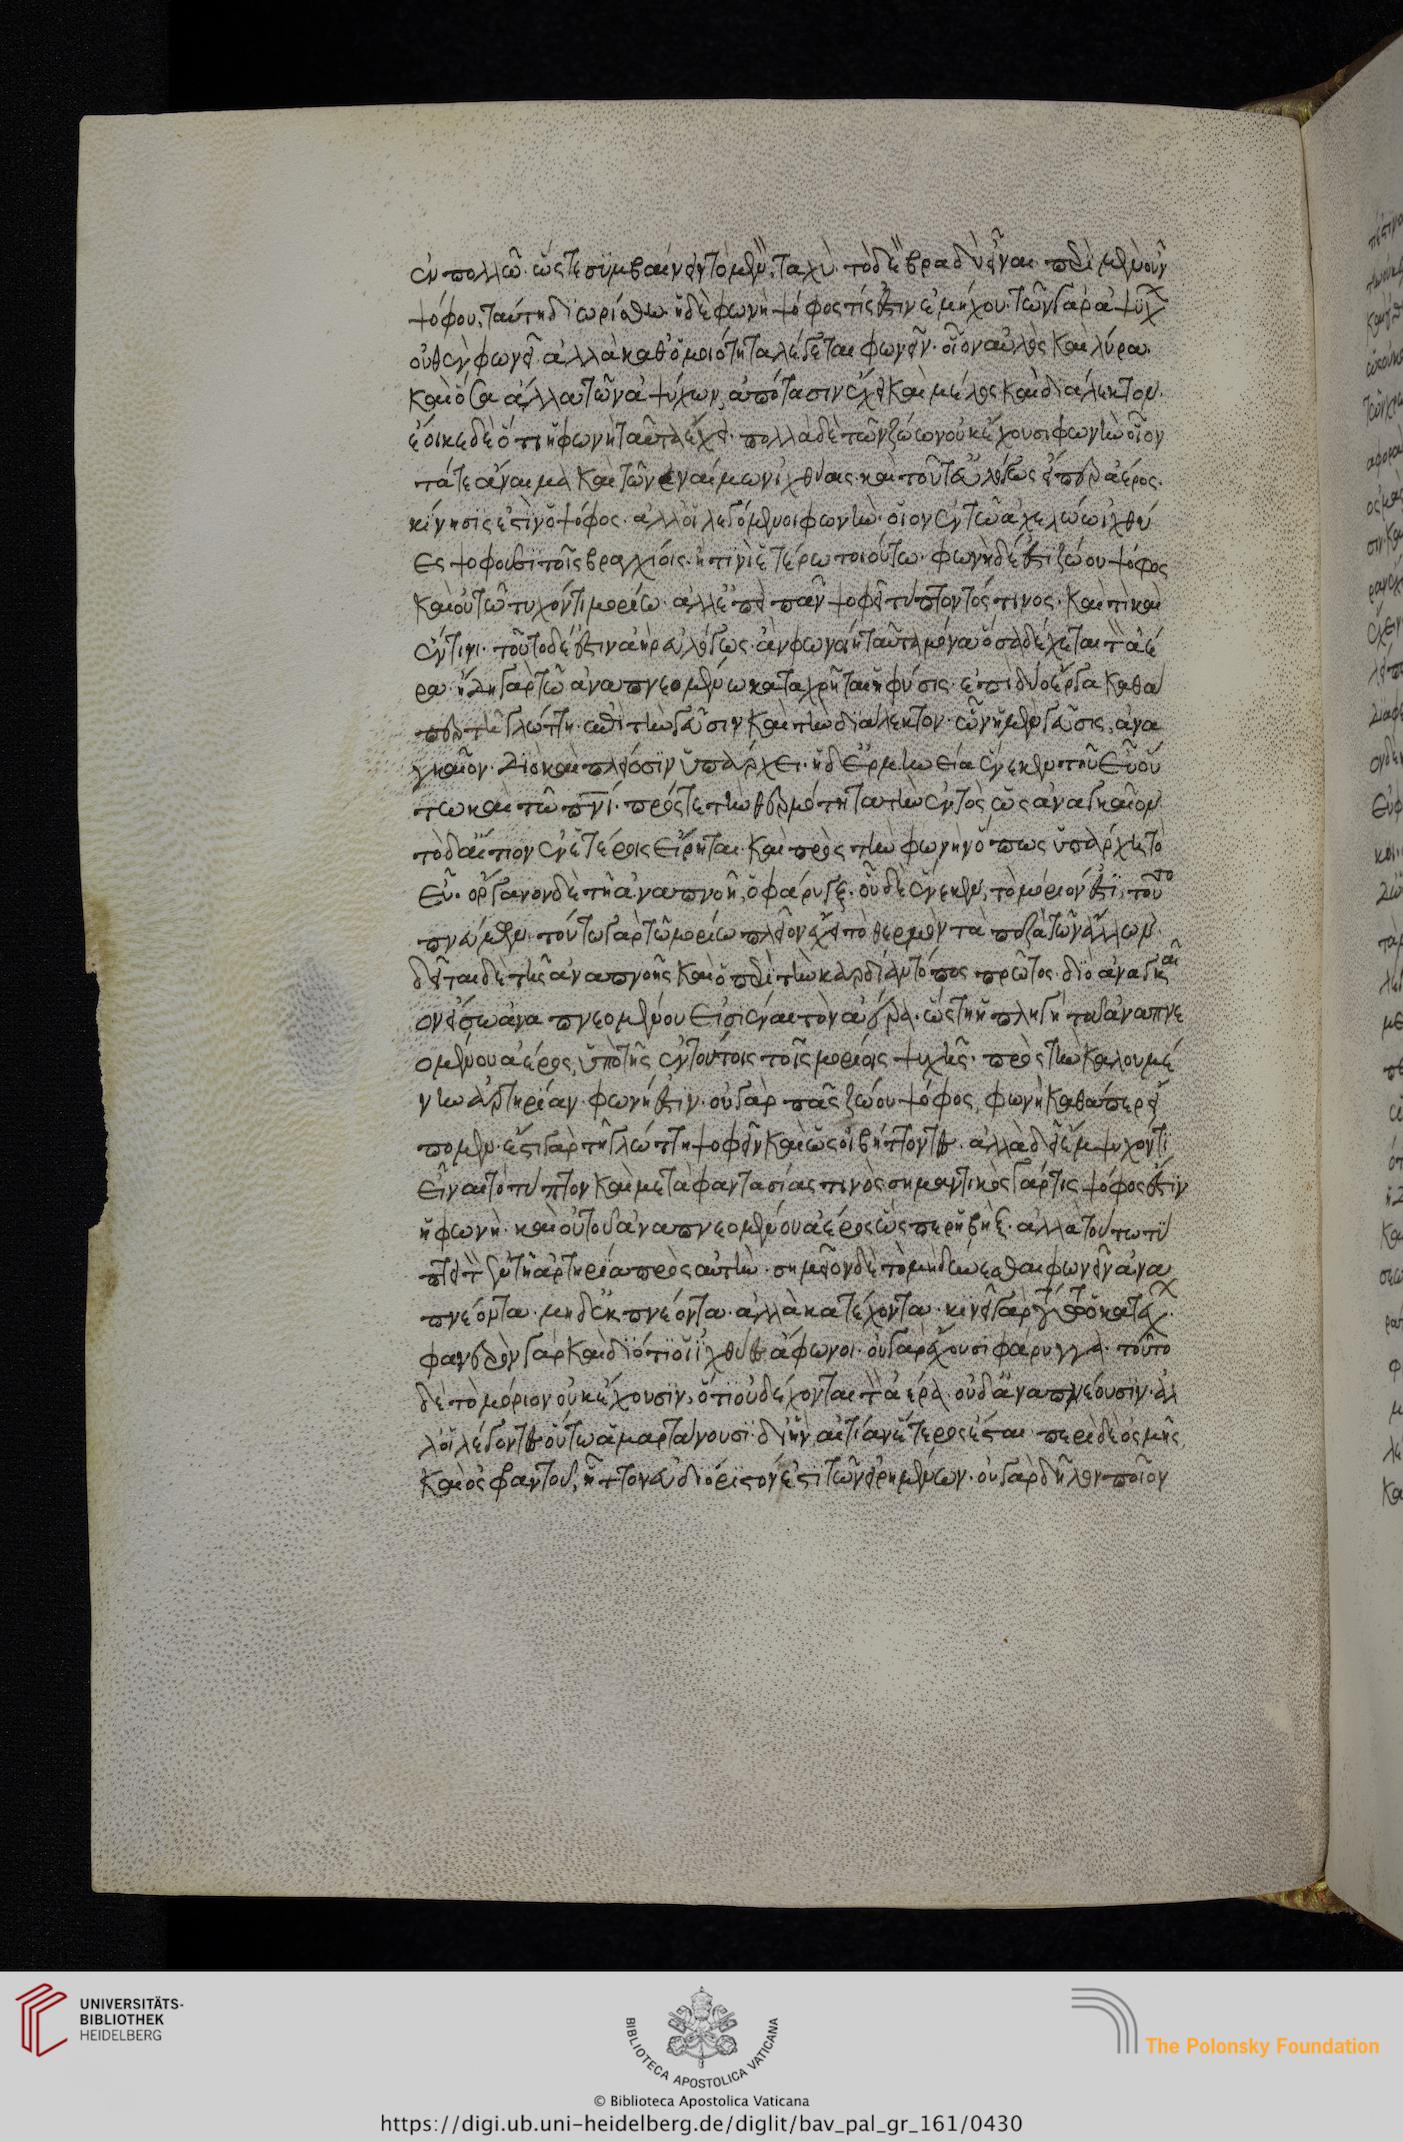 ἐν πολλῶ. ὥστε συμβαίνειν τὸ μὲν, ταχύ. τὸ δὲ βραδὺ εἶναι. περὶ μὲν οὖν
ψόφου, ταύτη διωρίσθω. ἡ δὲ φωνὴ ψόφος τίς ἐστιν ἐμψύχου. τῶν γὰρ ἀψύχ
οὐθὲν φωνεῖ. ἀλλὰ καθ' ὁμοιότητα λέγεται φωνεῖν. οἷον αὐλὸς καὶ λύρα.
καὶ ὅσα ἄλλα τῶν ἀψύχων, ἀπότασιν ἔχει καὶ μέλος καὶ διάλεκτον.
ἔοικε δὲ ὅτι ἡ φωνὴ ταῦτα ἔχει. πολλὰ δὲ τῶν ζώων οὐκ ἔχουσι φωνὴν οἷον
τά τε ἄναιμα καὶ τῶν ἐναίμων ἰχθύες. καὶ τοῦτ' εὐλόγως εἴπερ ἀέρος
κίνησίς ἐστιν ὁ ψόφος. ἀλλ' οἱ λεγόμενοι φωνεῖν. οἷον ἐν τῶ ἀχελώω ἰχθύ
ες ψοφοῦσι τοῖς βραγχίοις. ἤ τινι ἑτέρω τοιούτω. φωνὴ δ' ἐστὶ ζώου ψόφος
καὶ οὐ τῶ τυχόντι μορίω. ἀλλ' ἐπεὶ πᾶν ψοφεῖ τύπτοντός τινος. καί τι καὶ
ἔν τινι. τοῦτο δ' ἐστὶν ἀὴρ εὐλόγως. ἂν φωνοίη ταῦτα μόνα ὅσα δέχεται τὸν ἀέ
ρα. ἤδη γὰρ τῶ ἀναπνεομένω καταχρῆται ἡ φύσις. ἐπὶ δύο ἔργα καθά
περ τῆ γλώττη. ἐπὶ τὴν γεῦσιν καὶ τὴν διάλεκτον. ὧν ἡ μὲν γεῦσις, ἀνα
γκαῖον. διὸ καὶ πλείοσιν ὑπάρχει. ἡ δ' ἑρμηνεία ἕνεκεν τοῦ εὖ οὕ
τω καὶ τῶ πνι. πρός τε τὴν θερμότητα τὴν ἐντὸς, ὡς ἀναγκαῖον.
τὸ δ' αἴτιον ἐν ἑτέροις εἴρηται. καὶ πρὸς τὴν φωνὴν ὅπως ὑπάρχη τὸ
εὖ. ὄργανον δὲ τῆ ἀναπνοῆ, ὁ φάρυγξ. οὗ δὲ ἕνεκεν, τὸ μόριόν ἐστι, τοῦτο
πνεύμων. τούτω γὰρ τῶ μορίω πλεῖον ἔχει τὸ θερμὸν τὰ πεζὰ τῶν ἄλλων.
δεῖται δὲ τῆς ἀναπνοῆς καὶ ὁ περὶ τὴν καρδίαν τόπος πρῶτος. διὸ ἀναγκαῖ
ον εἴσω ἀναπνεομένου εἰσιέναι τὸν ἀέρα. ὥστε ἡ πληγὴ τοῦ ἀναπνε
ομένου ἀέρος, ὑπὸ τῆς ἐν τούτοις τοῖς μορίοις ψυχῆς. πρὸς τὴν καλουμέ
νην ἀρτηρίαν. φωνή ἐστιν. οὐ γὰρ πᾶς ζώου ψόφος, φωνὴ καθάπερ εἴ
πομεν. ἔστι γὰρ τῆ γλώττη ψοφεῖν καὶ ὡς οἱ βήττοντες. ἀλλὰ δεῖ ἔμψυχόν τι
εἶναι τὸ τύπτον καὶ μετὰ φαντασίας τινὸς σημαντικὸς γάρ τις ψόφος ἐστὶν
ἡ φωνή. καὶ οὐ τοῦ ἀναπνεομένου ἀέρος ὥσπερ ἡ βήξ. ἀλλὰ τούτω τύ
πτει τὸν ἐν τῆ ἀρτηρία πρὸς αὐτήν. σημεῖον δὲ τὸ μὴ δύνασθαι φωνεῖν ἀνα
πνέοντα. μηδ' ἐκπνέοντα. ἀλλὰ κατέχοντα. κινεῖ γὰρ τούτω ὁ κατέχ
φανερὸν γὰρ καὶ διότι οἱ ἰχθύες ἄφωνοι. οὐ γὰρ ἔχουσι φάρυγγα. τοῦτο
δὲ τὸ μόριον οὐκ ἔχουσιν, ὅτι οὐ δέχονται τὸν ἀέρα. οὐδ' ἀναπνέουσιν. ἀλ
λ' οἱ λέγοντες οὕτω ἁμαρτάνουσι. δι' ἣν αἰτίαν ἕτερός ἐσται περὶ δὲ ὀσμῆς
καὶ ὀσφραντοῦ, ἧττον εὐδιόριστόν ἐστι τῶν εἰρημένων. οὐ γὰρ δῆλον ποῖον
UNIVERSITÄTS-
BIBLIOTHEK
HEIDELBERG
BIBLIOTECA APOSTOLICA VATICANA
The Polonsky Foundation
© Biblioteca Apostolica Vaticana
https://digi.ub.uni-heidelberg.de/diglit/bav_pal_gr_161/0430